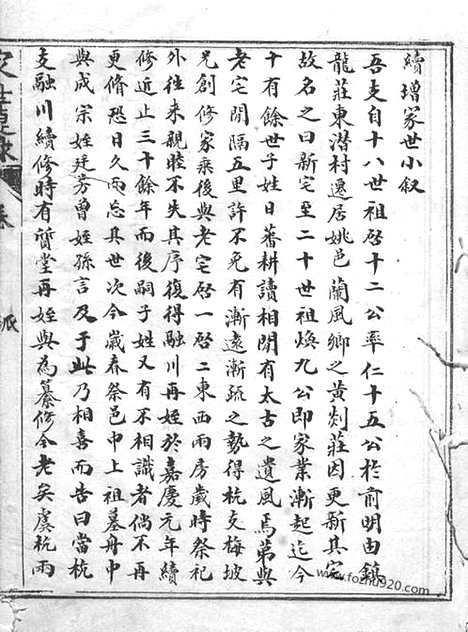 續增家世小叙
吾支自十八世祖啓十二公率仁十五公於前明由鎮
龍莊東潛村遷居姚邑蘭風鄉之黃剡莊因更新其宅
故名之曰新宅至二十世祖煥九公即家業漸起迄今
十有餘世子姓日蕃耕讀相閒有太古之遺風焉第與
老宅間隔五里許不免有漸遠漸疏之勢得杭支梅坡
兄創修家乘後與老宅啓一啓二東西兩房歲時祭祀
外往来親睦不失其序復得融川再姪於嘉慶元年續
修近止三十餘年而後嗣子姓又有不相識者倘不再
更脩恐日久而忘其世次今歲春祭邑中上祖墓舟中
與成宗姪廷芳曾姪孫言及于此乃相喜而告曰當杭
支融川續修時有質堂再姪與為纂修今老矣虞杭兩
派
www.fozhu920.com